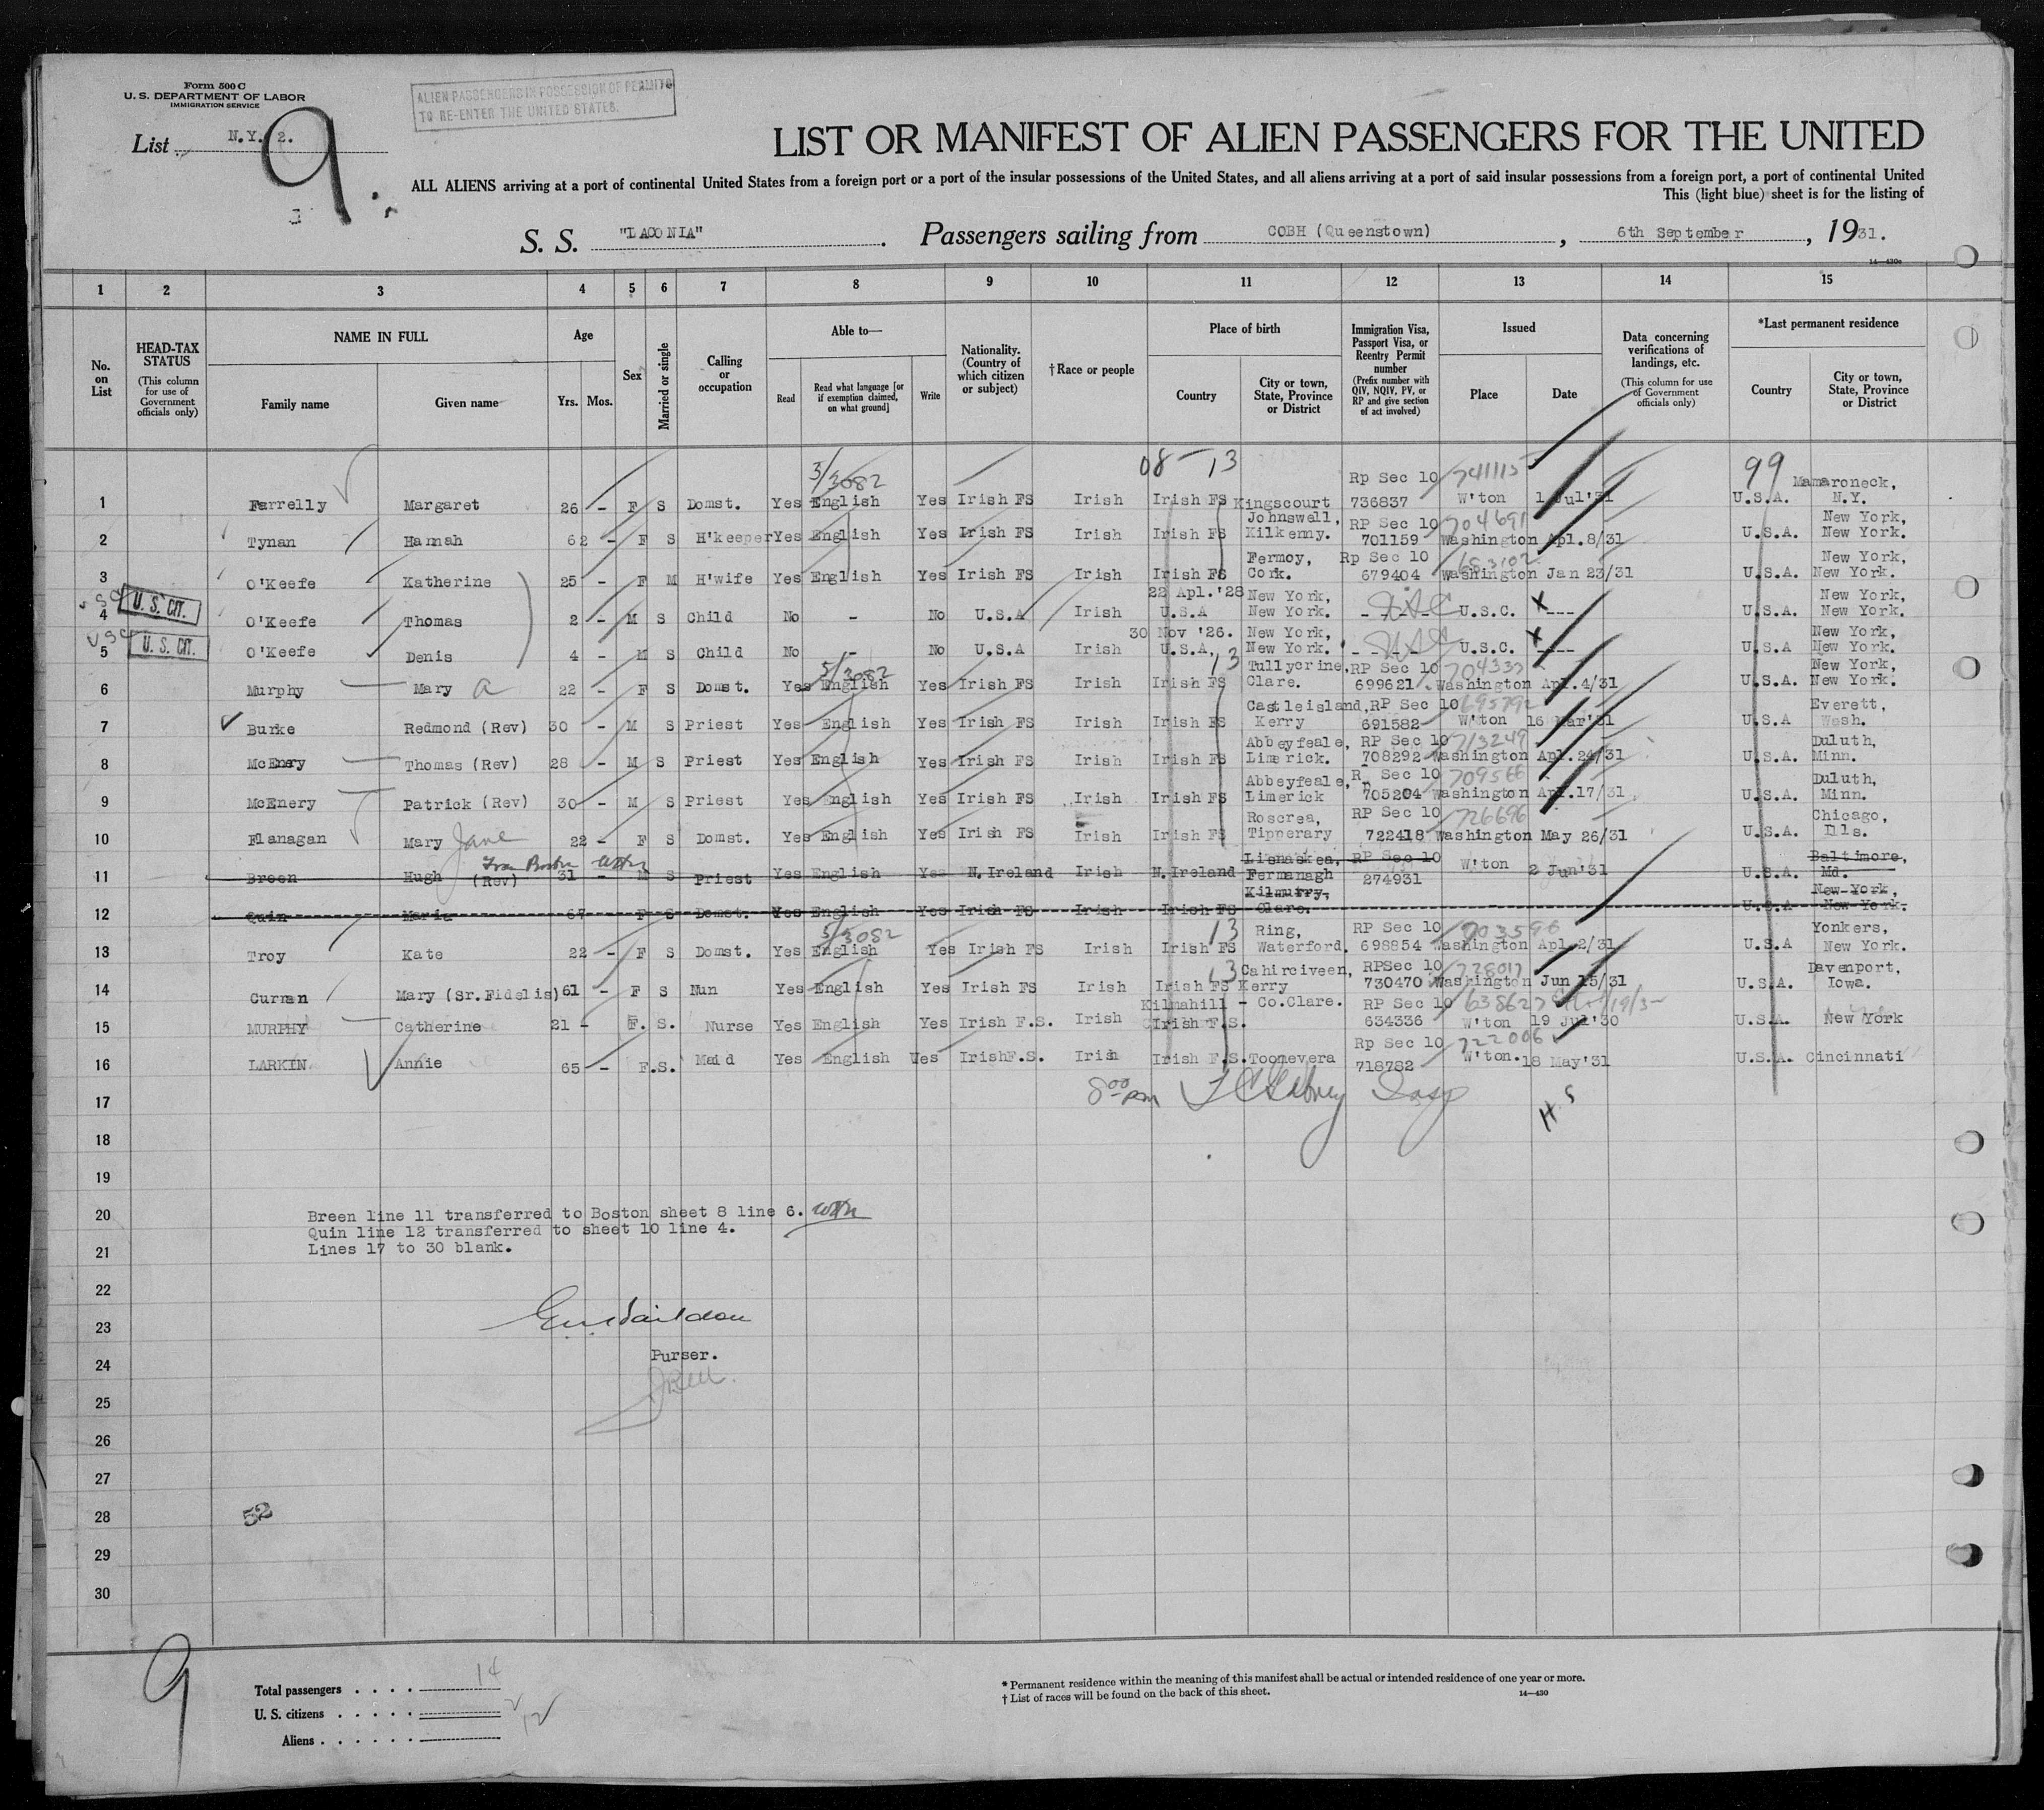 Form 500 C
U. S. DEPARTMENT OF LABOR
IMMIGRATION SERVICE
ALIEN PASSENGERS IN POSSESSION OF PERMITS
TO RE-ENTER THE UNITED STATES.
List N.Y. 2.
9
LIST OR MANIFEST OF ALIEN PASSENGERS FOR THE UNITED
ALL ALIENS arriving at a port of continental United States from a foreign port or a port of the insular possessions of the United States, and all aliens arriving at a port of said insular possessions from a foreign port, a port of continental United
This (light blue) sheet is for the listing of
S. S. "LACONIA". Passengers sailing from COBH (Queenstown), 6th September, 1931.
14—430a
1 2 3 4 5 6 7 8 9 10 11 12 13 14 15
No. on List
HEAD-TAX STATUS (This column for use of Government officials only)
NAME IN FULL
Family name Given name
Age
Yrs. Mos.
Sex
Married or single
Calling or occupation
Able to—
Read Read what language [or if exemption claimed, on what ground] Write
Nationality. (Country of which citizen or subject)
†Race or people
Place of birth
Country City or town, State, Province or District
Immigration Visa, Passport Visa, or Reentry Permit number (Prefix number with QIV, NQIV, PV, or RP and give section of act involved)
Issued
Place Date
Data concerning verifications of landings, etc. (This column for use of Government officials only)
*Last permanent residence
Country City or town, State, Province or District
3/3082 08-13 99
1 Farrelly Margaret 26 - F S Domst. Yes English Yes Irish FS Irish Irish FS Kingscourt Rp Sec 10 736837 741115 W'ton 1 Jul'31 U.S.A. Mamaroneck, N.Y.
2 Tynan Hannah 62 - F S H'keeper Yes English Yes Irish FS Irish Irish FS Johnswell, Kilkenny. RP Sec 10 701159 704691 Washington Apl.8/31 U.S.A. New York, New York.
3 O'Keefe Katherine 25 - F M H'wife Yes English Yes Irish FS Irish Irish FS Fermoy, Cork. Rp Sec 10 679404 683102 Washington Jan 23/31 U.S.A. New York, New York.
4 U. S. CIT. O'Keefe Thomas 2 - M S Child No - No U.S.A Irish 22 Apl.'28 U.S.A New York, New York. - - - U.S.C. X --- U.S.A. New York, New York.
5 U. S. CIT. O'Keefe Denis 4 - M S Child No - No U.S.A Irish 30 Nov '26. U.S.A. New York, New York. - - - U.S.C. X --- U.S.A New York, New York.
5/3082 13
6 Murphy Mary a 22 - F S Domst. Yes English Yes Irish FS Irish Irish FS Tullycrine, Clare. RP Sec 10 699621 704333 Washington Apl.4/31 U.S.A. New York, New York.
7 Burke Redmond (Rev) 30 - M S Priest Yes English Yes Irish FS Irish Irish FS Castleisland, Kerry RP Sec 10 691582 695792 W'ton 16 Mar'31 U.S.A Everett, Wash.
8 McEnery Thomas (Rev) 28 - M S Priest Yes English Yes Irish FS Irish Irish FS Abbeyfeale, Limerick. RP Sec 10 708292 713249 Washington Apl.24/31 U.S.A. Duluth, Minn.
9 McEnery Patrick (Rev) 30 - M S Priest Yes English Yes Irish FS Irish Irish FS Abbeyfeale, Limerick R Sec 10 705204 709566 Washington Apl.17/31 U.S.A. Duluth, Minn.
10 Flanagan Mary Jane 22 - F S Domst. Yes English Yes Irish FS Irish Irish FS Roscrea, Tipperary RP Sec 10 722418 726696 Washington May 26/31 U.S.A. Chicago, Ills.
11 Breen Hugh (Rev) 31 - M S Priest Yes English Yes N.Ireland Irish N.Ireland Lisnaskea, Fermanagh RP Sec 10 274931 W'ton 2 Jun'31 U.S.A. Baltimore, Md.
12 Quin Maria 67 - F S Domst. Yes English Yes Irish FS Irish Irish FS Kilmurry, Clare. U.S.A New York, New York.
5/3082 13
13 Troy Kate 22 - F S Domst. Yes English Yes Irish FS Irish Irish FS Ring, Waterford. RP Sec 10 698854 703596 Washington Apl 2/31 U.S.A Yonkers, New York.
13
14 Curran Mary (Sr.Fidelis) 61 - F S Nun Yes English Yes Irish FS Irish Irish FS Cahirciveen, Kerry RPSec 10 730470 728017 Washington Jun 15/31 U.S.A. Davenport, Iowa.
15 MURPHY Catherine 21 - F. S. Nurse Yes English Yes Irish F.S. Irish Irish F.S. Kilmahill - Co.Clare. RP Sec 10 634336 638627 W'ton 19 Jul'30 U.S.A. New York
16 LARKIN Annie 65 - F.S. Maid Yes English Yes IrishF.S. Irish Irish F.S. Toomevera Rp Sec 10 718782 722006 W'ton. 18 May'31 U.S.A. Cincinnati
17 8 00 pm Insp H.S
18
19
20 Breen line 11 transferred to Boston sheet 8 line 6.
Quin line 12 transferred to sheet 10 line 4.
21 Lines 17 to 30 blank.
22
23
Purser.
24
25
26
27
28 52
29
30
9
Total passengers . . . . 14
U. S. citizens . . . . . 2
Aliens . . . . . . 12
* Permanent residence within the meaning of this manifest shall be actual or intended residence of one year or more.
† List of races will be found on the back of this sheet. 14—430